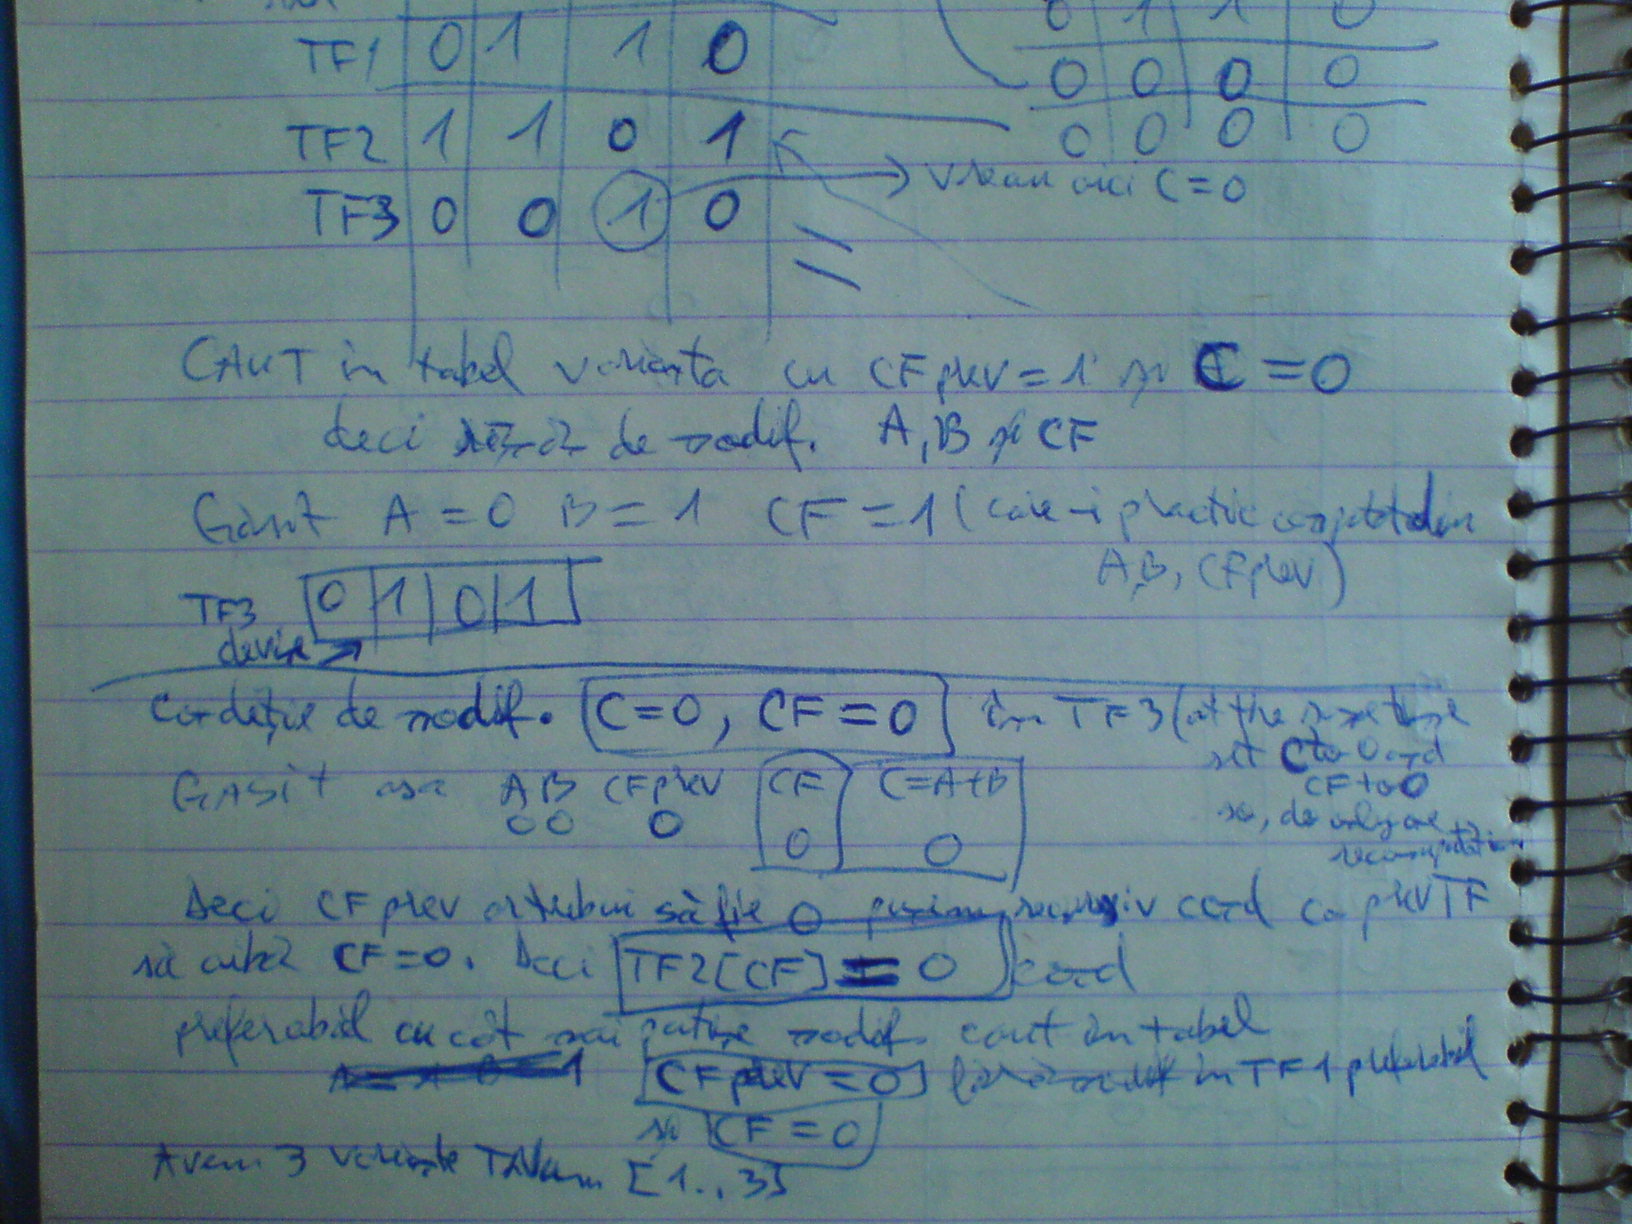 0 1 1 0
TF1 0 1 1 0
0 0 0 0
TF2 1 1 0 1
0 0 0 0
TF3 0 0 1 0
vreau aici C=0
CAUT în tabel varianta cu CFprev=1 și C=0
deci de modif. A, B și CF
Găsit A=0 B=1 CF=1 (care-i practic computed din
A,B, CFprev)
TF3 0 1 0 1
devine
Condiție de modif. C=0, CF=0 în TF3 (at the same time
set C to 0 and
CF to 0
so, do only one
recomputation
GASIT așa A B CFprev CF C=A+B
0 0 0 0 0
Deci CFprev ar trebui să fie 0 punem recursiv cond ca prevTF
să aibă CF=0. Deci TF2[CF]=0 cond
preferabil cu cât mai puține modif. caut în tabel
CFprev=0 fără modif în TF1 preferabil
și CF=0
Avem 3 variante [1..3]